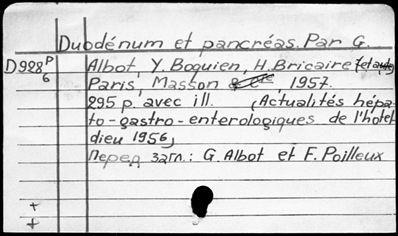 Duodénum et pancréas. Par G.
D928 P/6 Albot, Y. Boquien, H. Bricaire [et autr.]
Paris, Masson, 1957.
295 p. avec ill. (Actualités hépa-
to-gastro-enterologiques de l'hôtel
dieu 1956)
Перед загл.: G. Albot et F. Poilleux
+
+